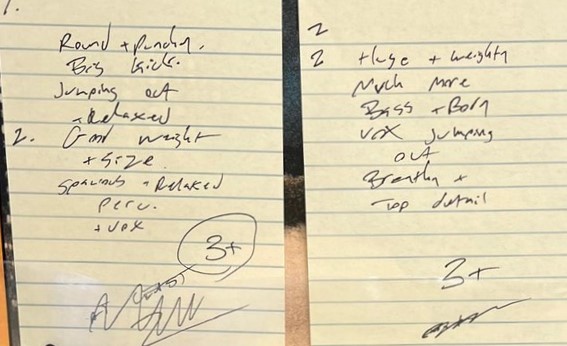 1.
Round + punchy.
Big kick.
Jumping out
+ Relaxed
2. Good weight
+ size.
spacious + Relaxed
perc.
+ vox
3+
2
2 Huge + weighty
Much more
Bass + Body
vox jumping
out
Breathy +
Top detail
3+